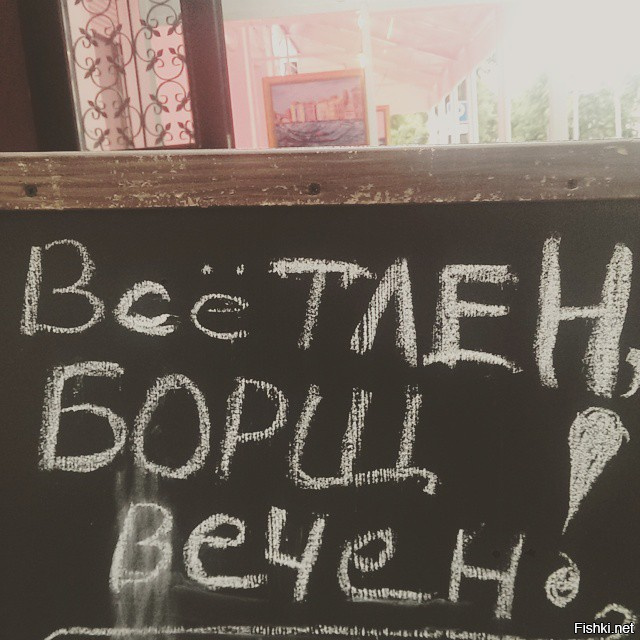 Всё ТЛЕН,
БОРЩ
Вечен!
Fishki.net